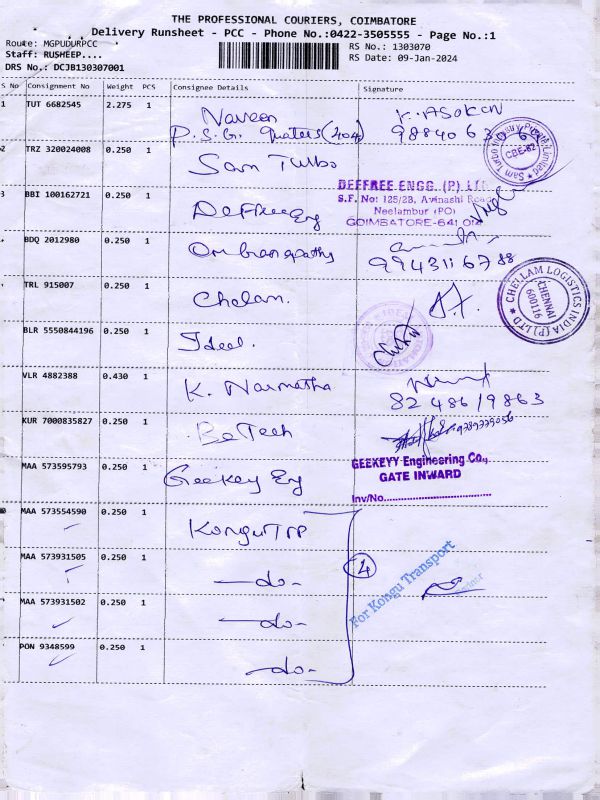 THE PROFESSIONAL COURIERS, COIMBATORE
Delivery Runsheet - PCC - Phone No.:0422-3505555 - Page No.:1
Route: MGPUDURPCC
RS No.: 1303070
Staff: RUSHEEP....
RS Date: 09-Jan-2024
DRS No.: DCJB130307001
S No Consignment No Weight PCS Consignee Details Signature
1 TUT 6682545 2.275 1 Naveen K. ASOKAN
P.S.G. Quaters (404)
2 TRZ 320024008 0.250 1 Sam Turbo
CBE-62
3 BBI 100162721 0.250 1 Deffree Eng
DEFFREE ENGG. (P) LTD
S.F. No: 125/2B, Avinashi Road
Neelambur (PO)
COIMBATORE-641 014
BDQ 2012980 0.250 1
99431 16788
TRL 915007 0.250 1 Chelam.
CHELLAM LOGISTICS INDIA (P) LTD
CHENNAI
600116
BLR 5550844196 0.250 1 Ideal.
VLR 4882388 0.430 1 K. Narmatha
82486 19863
KUR 7000835827 0.250 1 BeTech
MAA 573595793 0.250 1 Geekey Eng
GEEKEYY Engineering Co.,
GATE INWARD
Inv/No.
MAA 573554590 0.250 1 Kongu TPP
MAA 573931505 0.250 1 -do-
4
For Kongu Transport
MAA 573931502 0.250 1 -do-
PON 9348599 0.250 1 -do-